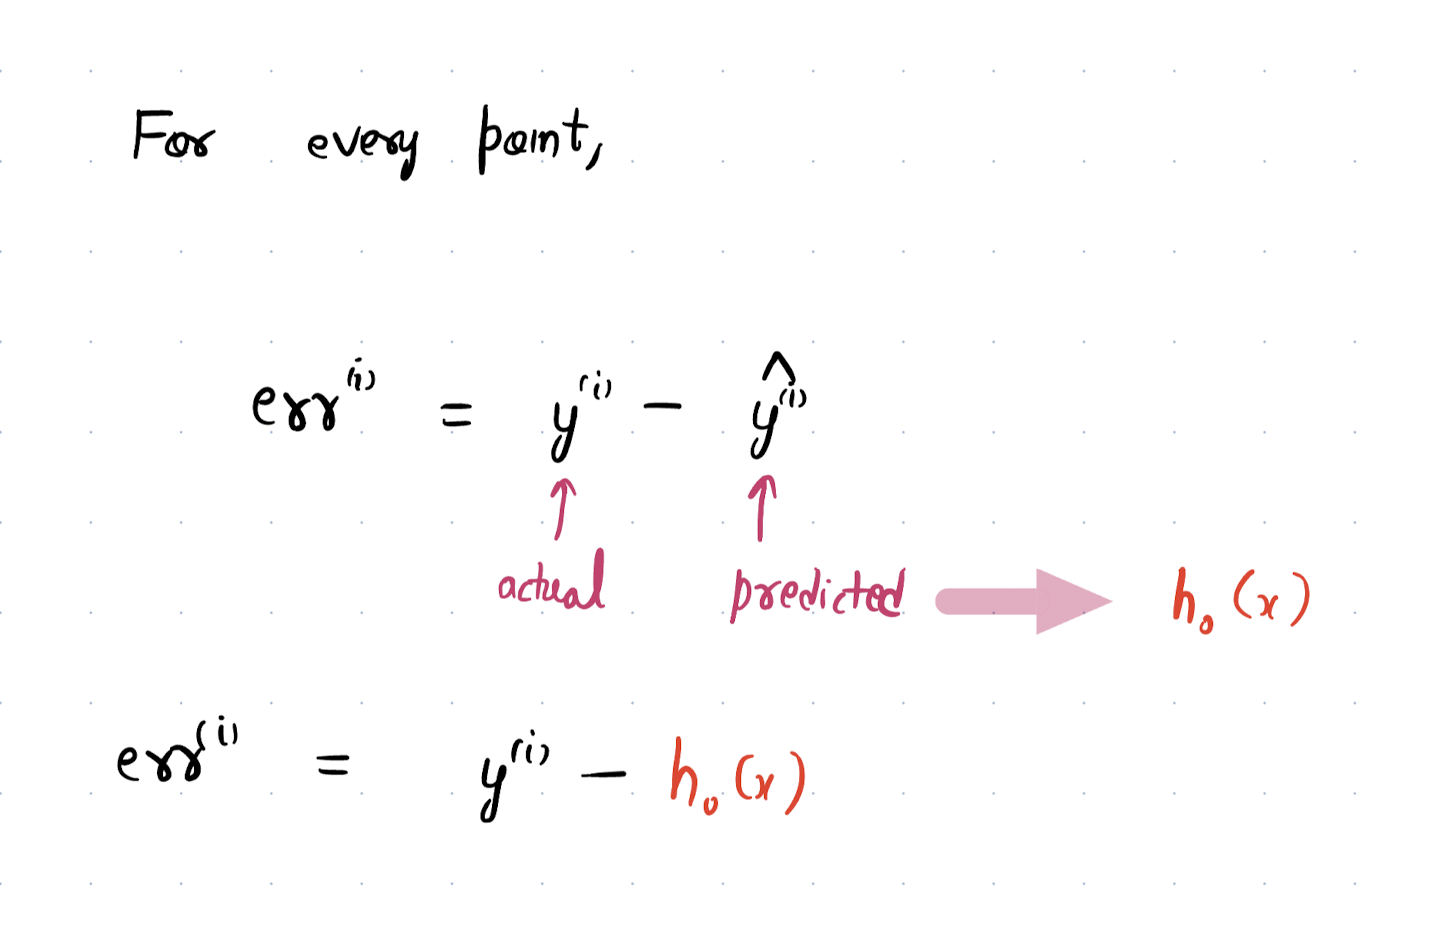 For every point,
err⁽ⁱ⁾ = y⁽ⁱ⁾ − ŷ⁽ⁱ⁾
↑ ↑
actual predicted → h₀(x)
err⁽ⁱ⁾ = y⁽ⁱ⁾ − h₀(x)